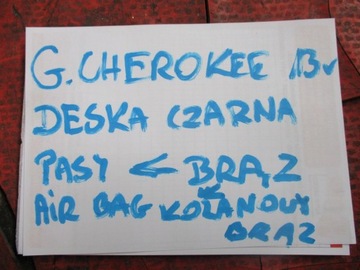 G. CHEROKEE 13r
DESKA CZARNA
PASY ← BRĄZ
AIR BAG KOŻANOWY
BRĄZ